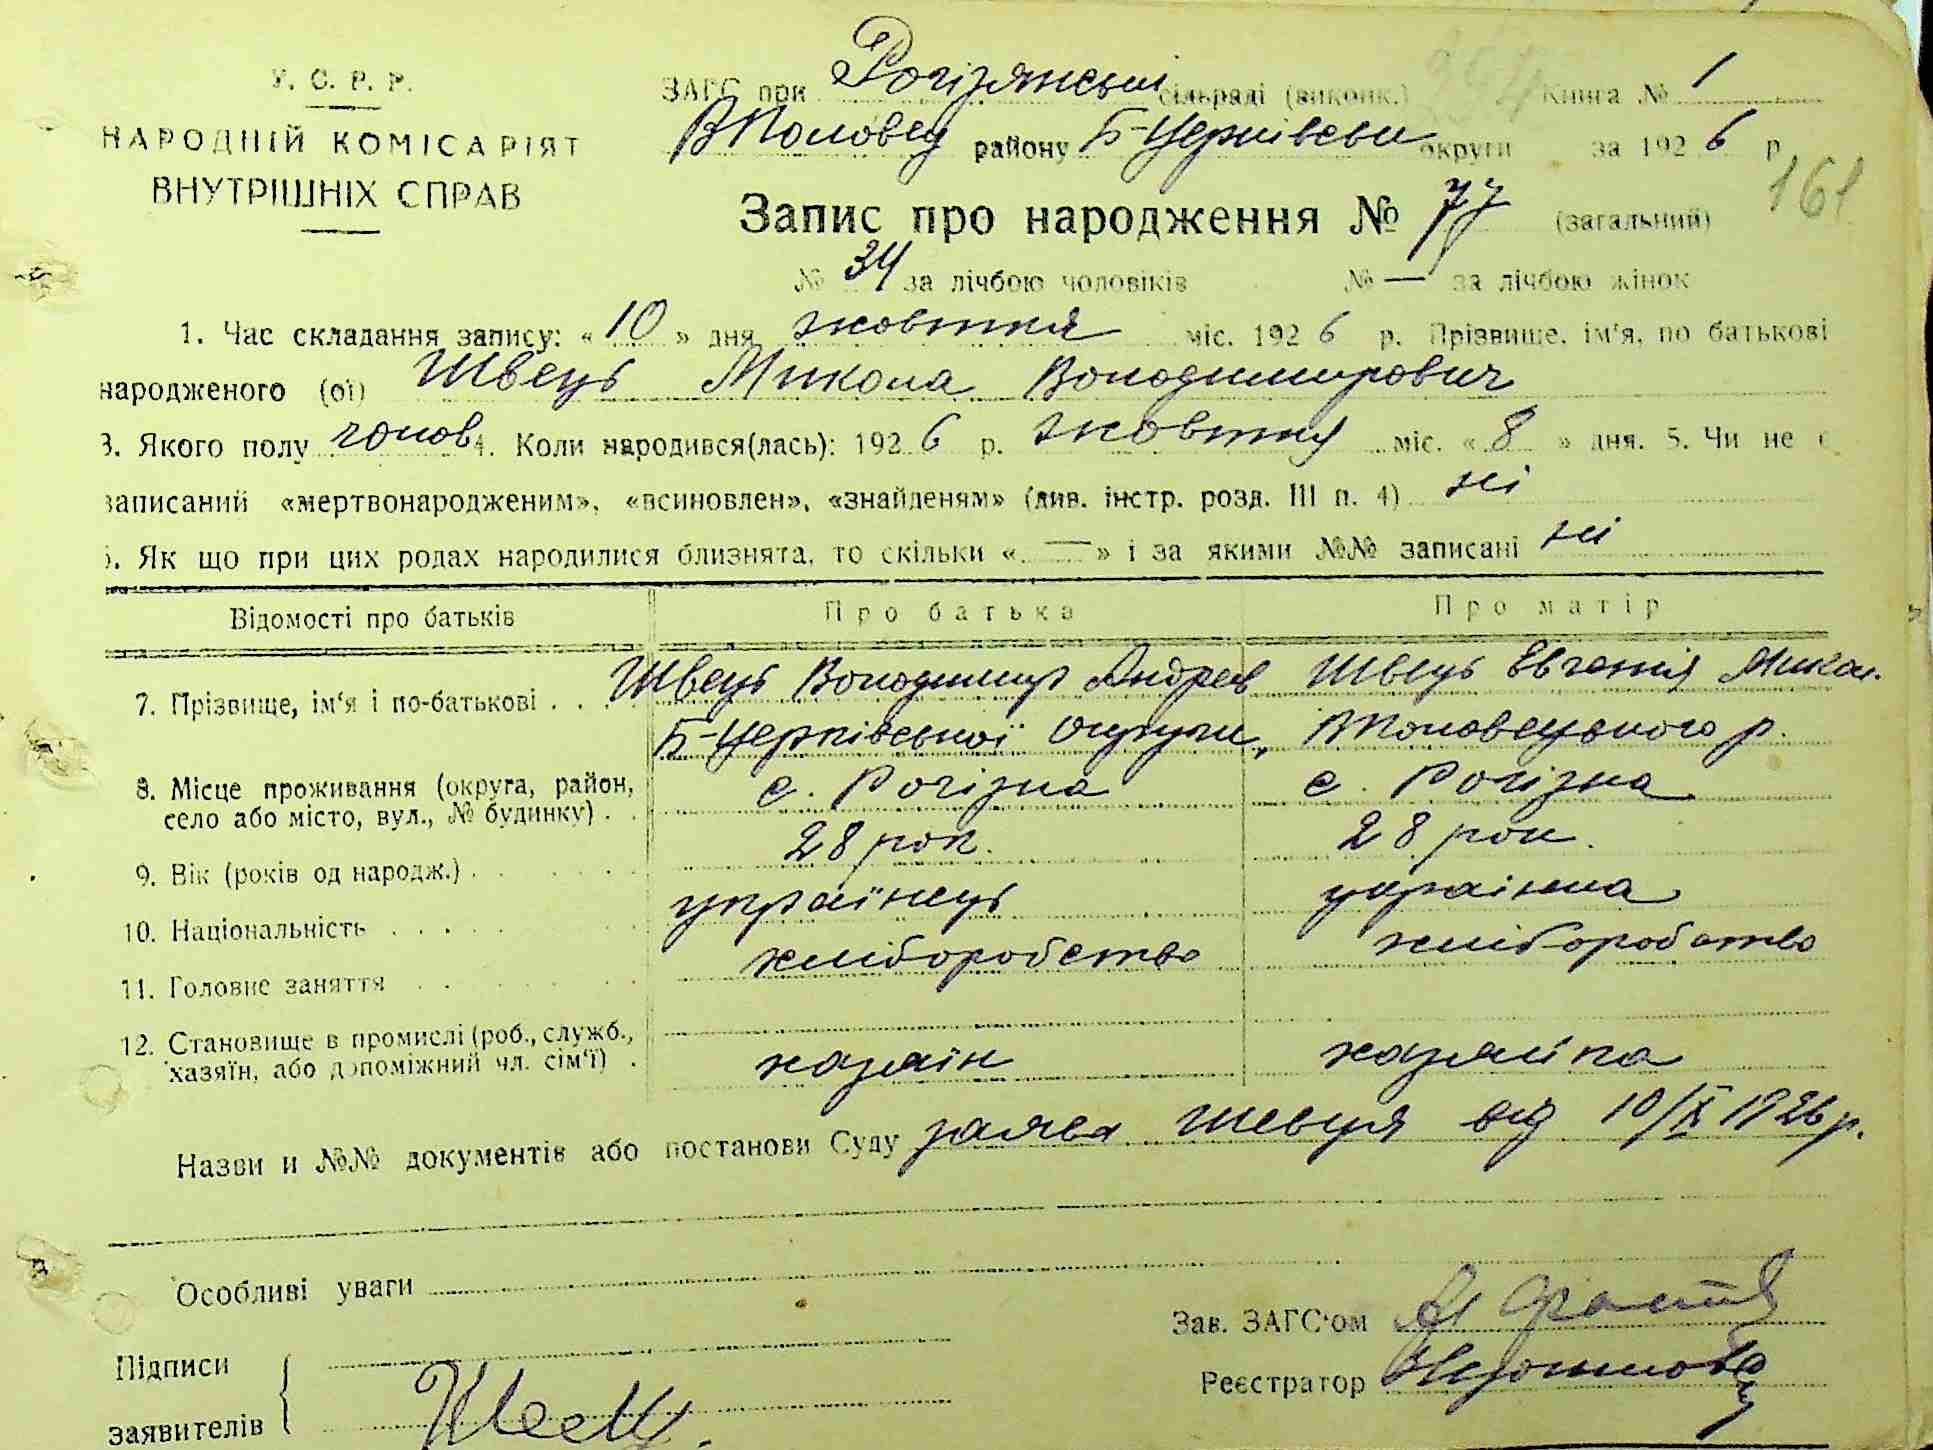 У. С. Р. Р.
НАРОДНІЙ КОМІСАРІЯТ
ВНУТРІШНІХ СПРАВ
ЗАГС при Рогізянській сільраді (виконк.) Книга № 1
ВПоловец району Б-Церківськ округи за 1926 р.
161
Запис про народження № 77 (загальний)
№ 34 за лічбою чоловіків № — за лічбою жінок
1. Час складання запису: «10» дня жовтня міс. 1926 р. Прізвище, ім'я, по батькові
народженого (ої) Швець Микола Володимирович
3. Якого полу чолов 4. Коли народився(лась): 1926 р. жовтня міс. «8» дня. 5. Чи не є
записаний «мертвонародженим», «всиновлен», «знайденям» (див. інстр. розд. III п. 4) ні
6. Як що при цих родах народилися близнята, то скільки «—» і за якими №№ записані ні
Відомості про батьків Про батька Про матір
7. Прізвище, ім'я і по-батькові . . . Швець Володимир Андреев Швець Евгенія Микол.
Б-Церківської округи, ВПоловецького р.
8. Місце проживання (округа, район, село або місто, вул., № будинку) . . с. Рогізна с. Рогізна
9. Вік (років од народж.) . . . 28 рок. 28 рок.
10. Національність . . . українець украінка
11. Головне заняття . . . хліборобство хліборобство
12. Становище в промислі (роб., служб., хазяїн, або допоміжний чл. сім'ї) . хазяїн хазяйка
Назви и №№ документів або постанови Суду заява Шевця від 10/X 1926 р.
Особливі уваги
Зав. ЗАГС'ом
Підписи
Реєстратор
заявителів